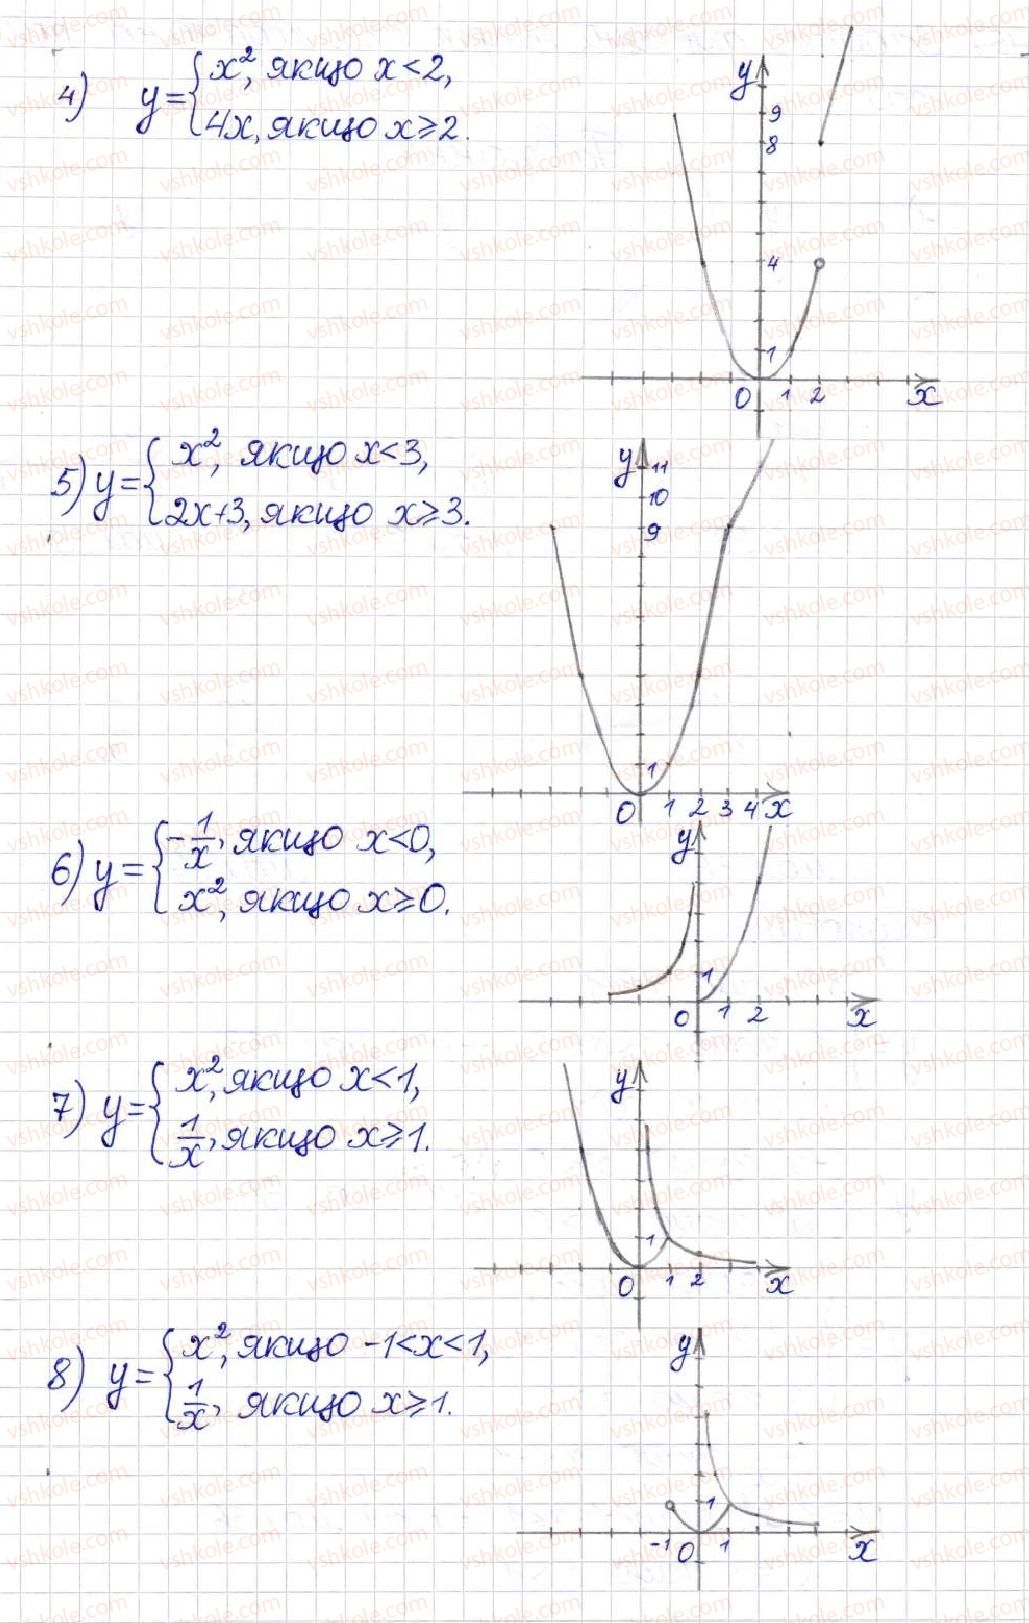 4) y = { x², якщо x < 2,
4x, якщо x ≥ 2.
y
9
8
4
1
0 1 2 x
5) y = { x², якщо x < 3,
2x+3, якщо x ≥ 3.
y
11
10
9
1
0 1 2 3 4 x
6) y = { -1/x, якщо x < 0,
x², якщо x ≥ 0.
y
1
0 1 2 x
7) y = { x², якщо x < 1,
1/x, якщо x ≥ 1.
y
1
0 1 2 x
8) y = { x², якщо -1 < x < 1,
1/x, якщо x ≥ 1.
y
1
-1 0 1 x
vshkole.com